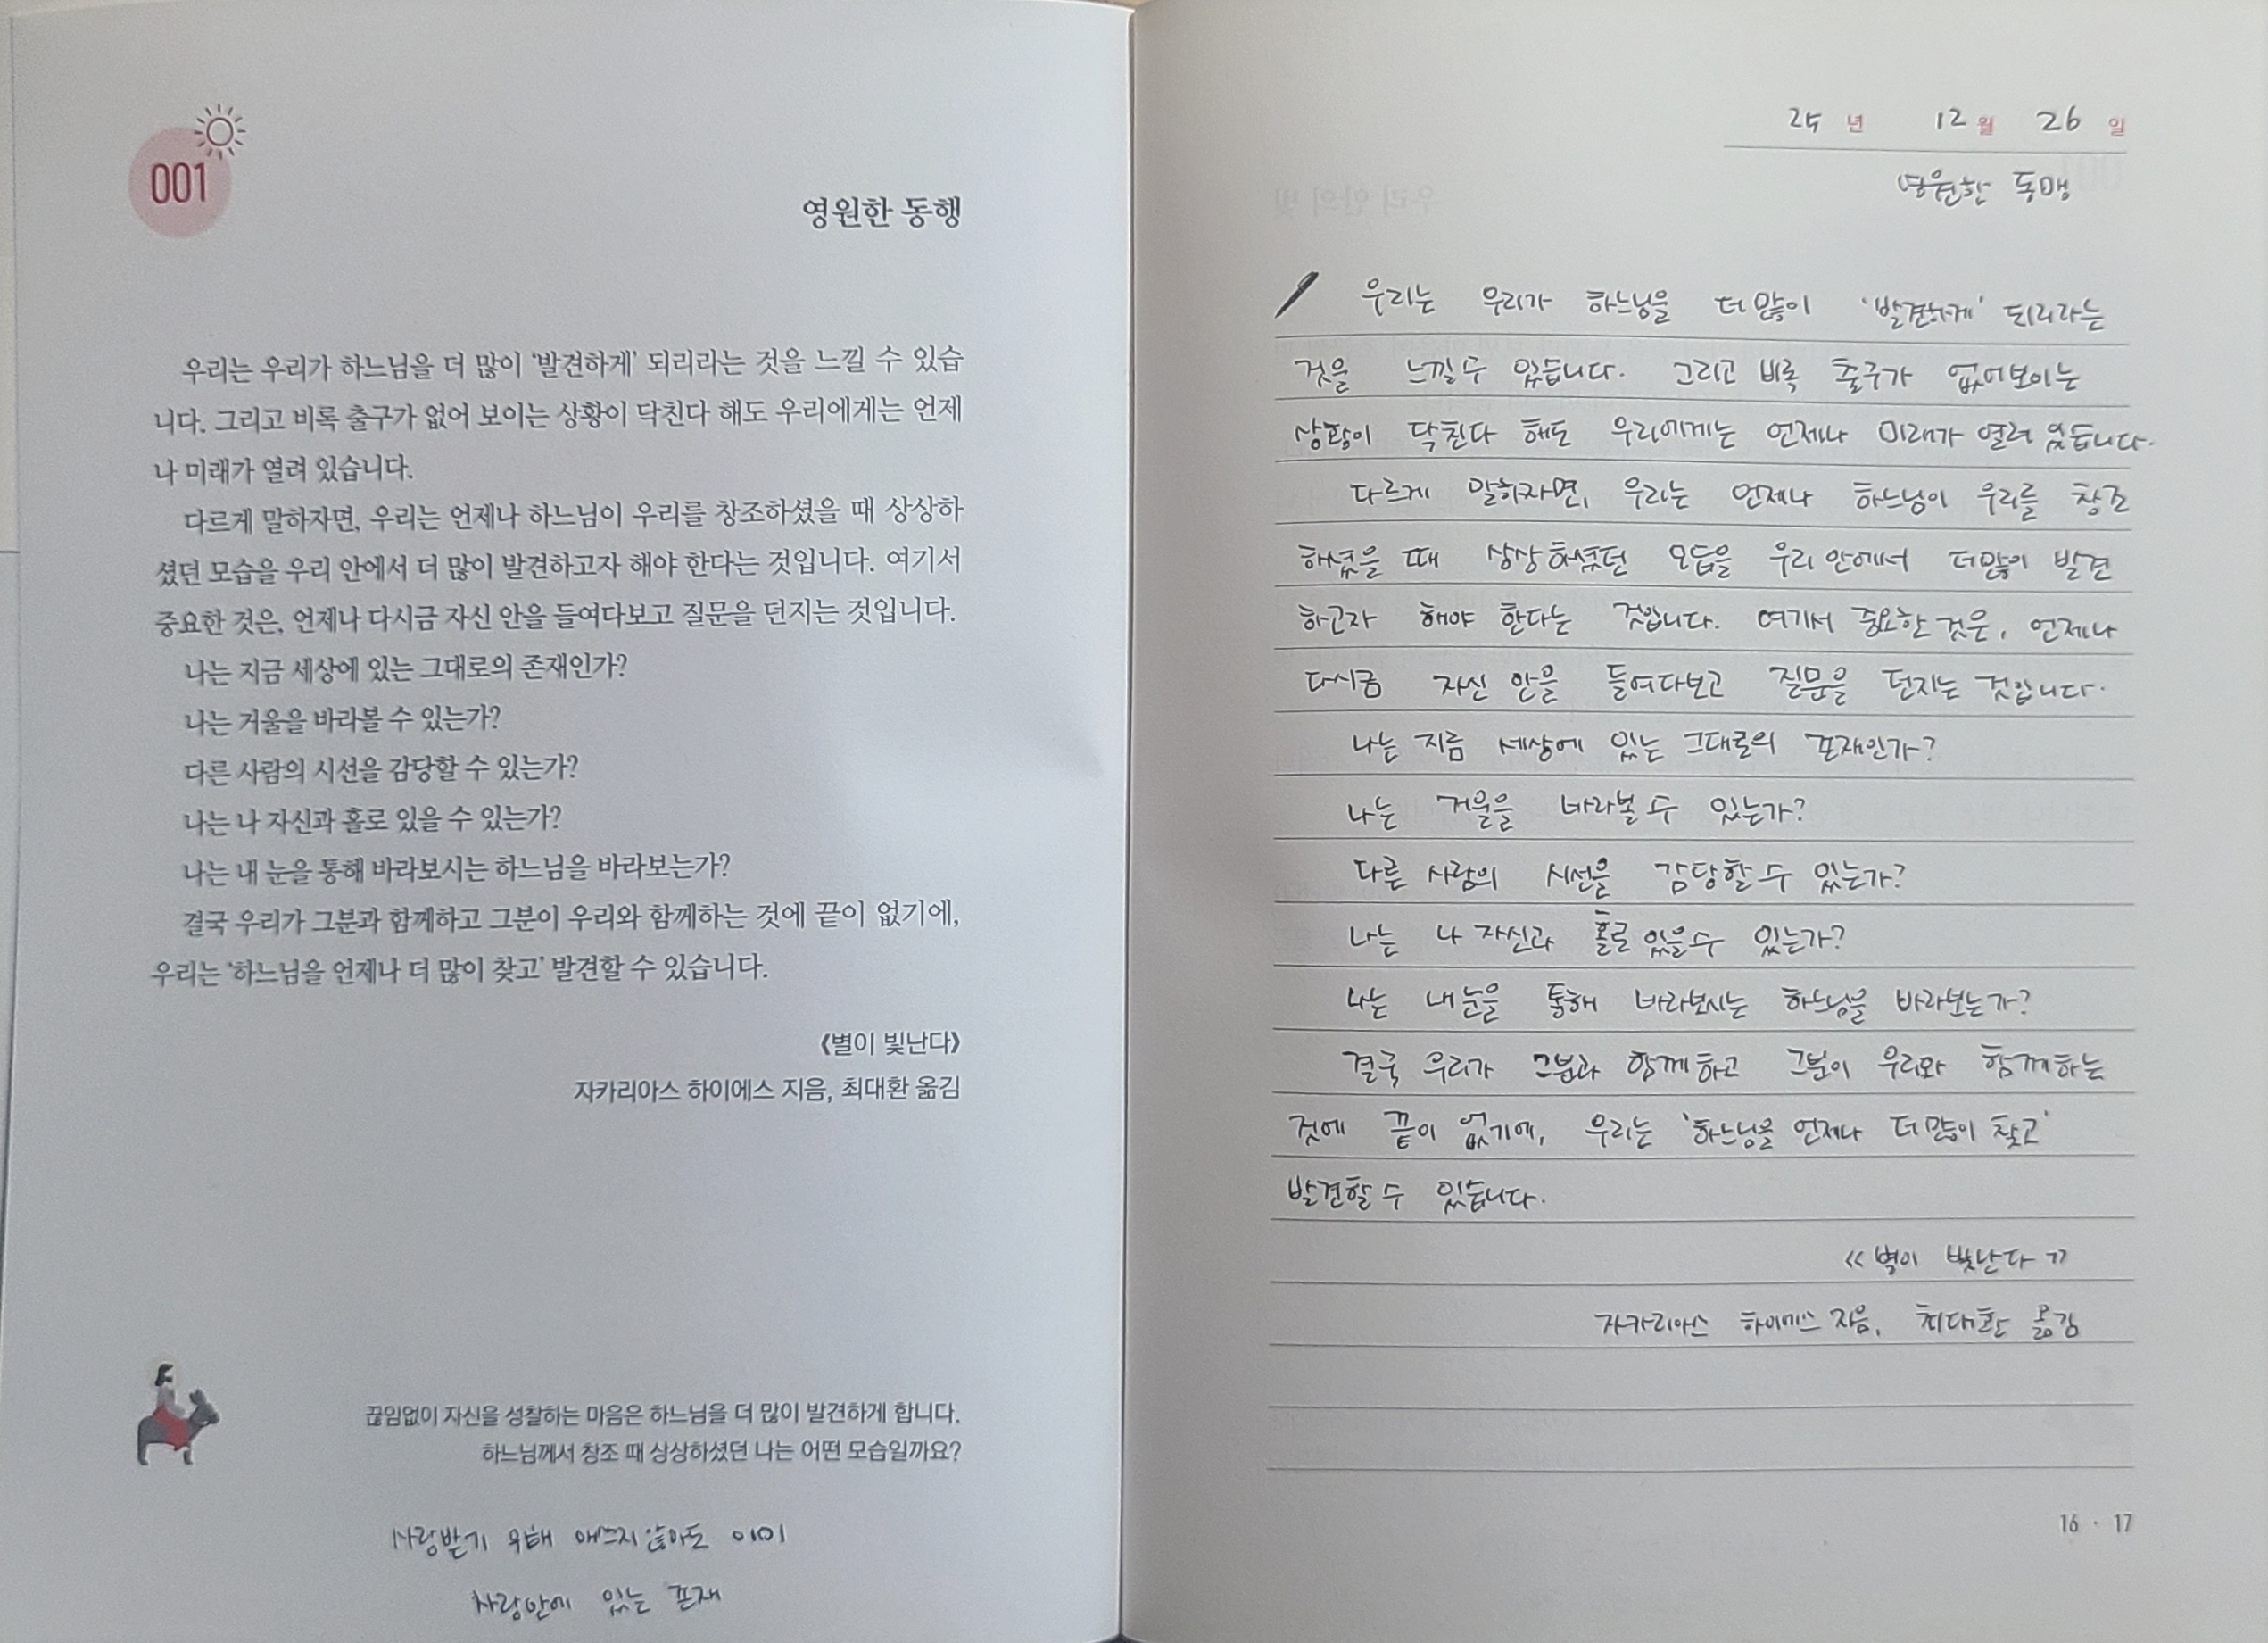 001
영원한 동행
우리는 우리가 하느님을 더 많이 ‘발견하게’ 되리라는 것을 느낄 수 있습
니다. 그리고 비록 출구가 없어 보이는 상황이 닥친다 해도 우리에게는 언제
나 미래가 열려 있습니다.
다르게 말하자면, 우리는 언제나 하느님이 우리를 창조하셨을 때 상상하
셨던 모습을 우리 안에서 더 많이 발견하고자 해야 한다는 것입니다. 여기서
중요한 것은, 언제나 다시금 자신 안을 들여다보고 질문을 던지는 것입니다.
나는 지금 세상에 있는 그대로의 존재인가?
나는 거울을 바라볼 수 있는가?
다른 사람의 시선을 감당할 수 있는가?
나는 나 자신과 홀로 있을 수 있는가?
나는 내 눈을 통해 바라보시는 하느님을 바라보는가?
결국 우리가 그분과 함께하고 그분이 우리와 함께하는 것에 끝이 없기에,
우리는 ‘하느님을 언제나 더 많이 찾고’ 발견할 수 있습니다.
《별이 빛난다》
자카리아스 하이에스 지음, 최대환 옮김
끊임없이 자신을 성찰하는 마음은 하느님을 더 많이 발견하게 합니다.
하느님께서 창조 때 상상하셨던 나는 어떤 모습일까요?
사랑받기 위해 애쓰지 않아도 이미
사랑안에 있는 존재
25 년 12 월 26 일
영원한 동행
우리는 우리가 하느님을 더 많이 ‘발견하게’ 되리라는
것을 느낄 수 있습니다. 그리고 비록 출구가 없어보이는
상황이 닥친다 해도 우리에게는 언제나 미래가 열려 있습니다.
다르게 말하자면, 우리는 언제나 하느님이 우리를 창조
하셨을 때 상상하셨던 모습을 우리 안에서 더 많이 발견
하고자 해야 한다는 것입니다. 여기서 중요한 것은, 언제나
다시금 자신 안을 들여다보고 질문을 던지는 것입니다.
나는 지금 세상에 있는 그대로의 존재인가?
나는 거울을 바라볼 수 있는가?
다른 사람의 시선을 감당할 수 있는가?
나는 나 자신과 홀로 있을 수 있는가?
나는 내 눈을 통해 바라보시는 하느님을 바라보는가?
결국 우리가 그분과 함께하고 그분이 우리와 함께하는
것에 끝이 없기에, 우리는 ‘하느님을 언제나 더 많이 찾고’
발견할 수 있습니다.
《별이 빛난다》
자카리아스 하이에스 지음, 최대환 옮김
16 · 17